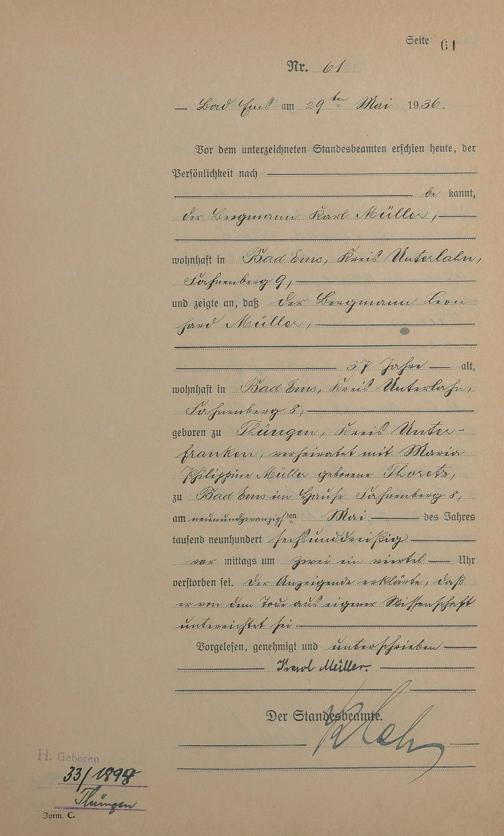 Seite 61
Nr. 61
Bad Ems am 29ten Mai 1936.
Vor dem unterzeichneten Standesbeamten erschien heute, der
Persönlichkeit nach
be kannt,
der Bergmann Karl Müller,
wohnhaft in Bad Ems, Kreis Unterlahn,
9,
und zeigte an, daß der Bergmann Leon
hard Müller,
57 Jahre alt,
wohnhaft in Bad Ems, Kreis Unterlahn,
8,
geboren zu Thüngen, Kreis Unter-
franken, verheiratet mit Maria
Philippine Müller geborene
zu Bad Ems im Hause 8,
am neunundzwanzigsten Mai des Jahres
tausend neunhundert sechsunddreißig
vor mittags um zwei ein viertel Uhr
verstorben sei. Der Anzeigende erklärte, daß
er von dem Tode aus eigener Wissenschaft
unterrichtet sei
Vorgelesen, genehmigt und unterschrieben
Karl Müller.
Der Standesbeamte.
H. Geboren
33/1898
Thüngen
Form. C.